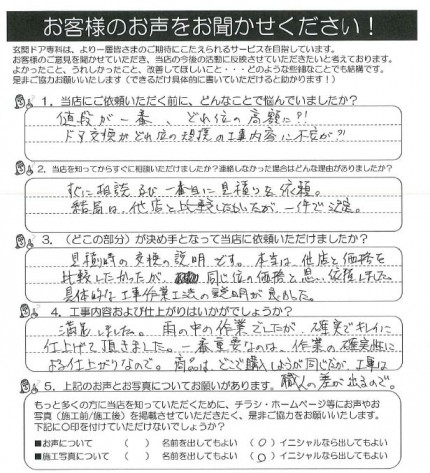 お客様のお声をお聞かせください！
玄関ドア専科は、より一層皆さまのご期待にこたえられるサービスを目指しています。
お客様のご意見を聞かせていただき、当店の今後の活動に反映させていただきたいと考えております。
よかったこと、うれしかったこと、改善してほしいこと・・・どのような些細なことでも結構です。
是非ご協力お願いいたします！（できるだけ具体的に書いていただけると助かります！）
1．当店にご依頼いただく前に、どんなことで悩んでいましたか？
値段が一番、どれ位の高額に?!
ドア交換がどれ位の規模の工事内容に不安が?!
2．当店を知ってからすぐに相談いただけましたか？連絡しなかった場合はどんな理由がありましたか？
すぐに相談及び一番目に見積りを依頼。
結局は、他店と比較したかったが、一件で決定。
3．（どこの部分）が決め手となって当店に依頼いただけましたか？
見積時の交換の説明です。本来は他店と価格を
比較したかったが、同じ位の価格と思い依頼しました。
具体的な工事作業工法の説明が良かった。
4．工事内容および仕上がりはいかがでしょうか？
満足しました。雨の中の作業でしたが、確実でキレイに
仕上げて頂きました。一番重要なのは、作業の確実性に
よる仕上がりなので。商品は、どこで購入しようが同じだが、工事は
職人の差が出るので。
5．上記のお声とお写真についてお願いがあります。
もっと多くの方に当店を知っていただくために、チラシ・ホームページ等にお声やお
写真（施工前/施工後）を掲載させていただきたく、是非ご協力をお願いいたします。
下記に〇印を付けていただけないでしょうか？
■お声について （ ）名前を出してもよい （〇）イニシャルなら出してもよい
■施工写真について （ ）名前を出してもよい （〇）イニシャルなら出してもよい